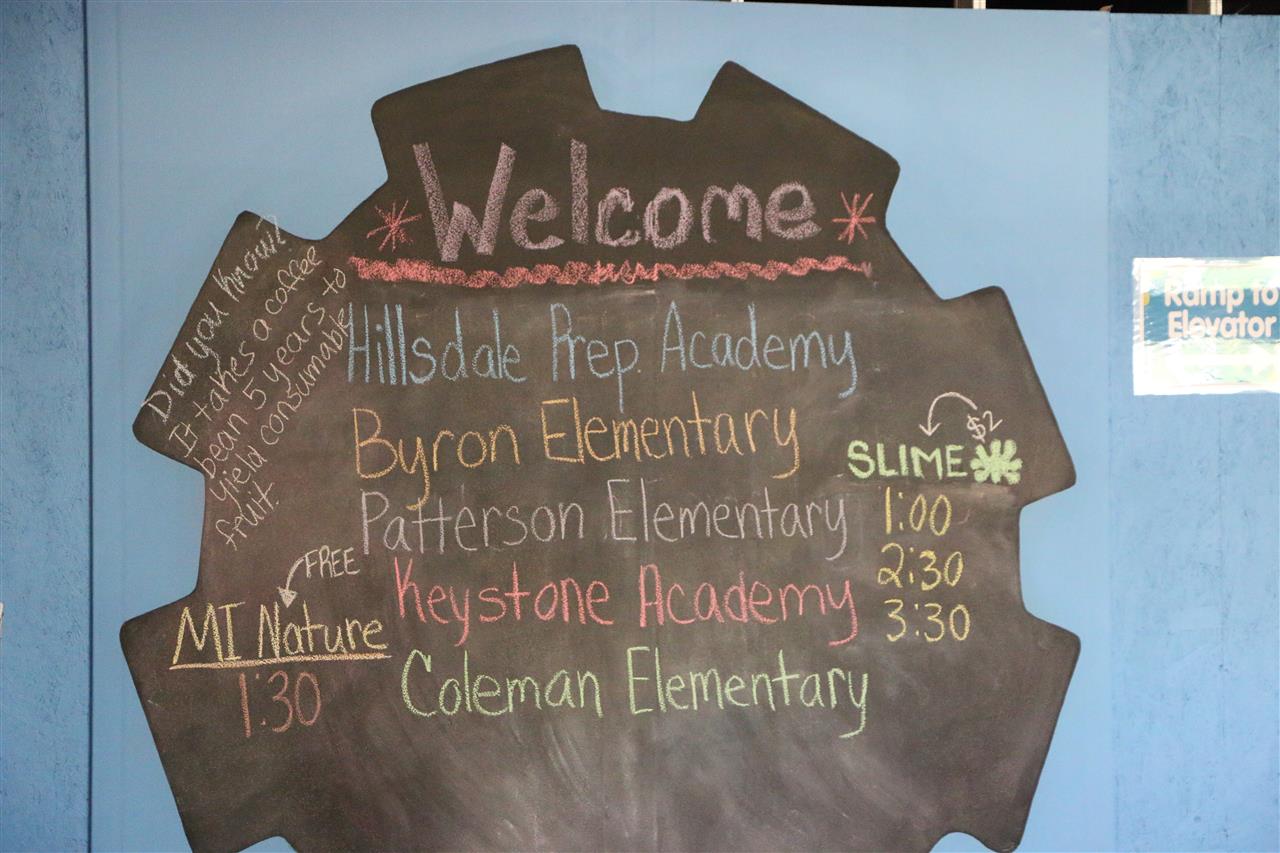 Welcome
Did you know?
It takes a coffee
bean 5 years to
yield consumable
fruit.
Hillsdale Prep. Academy
Byron Elementary
Patterson Elementary
Keystone Academy
Coleman Elementary
FREE
MI Nature
1:30
$2
SLIME
1:00
2:30
3:30
Ramp to
Elevator